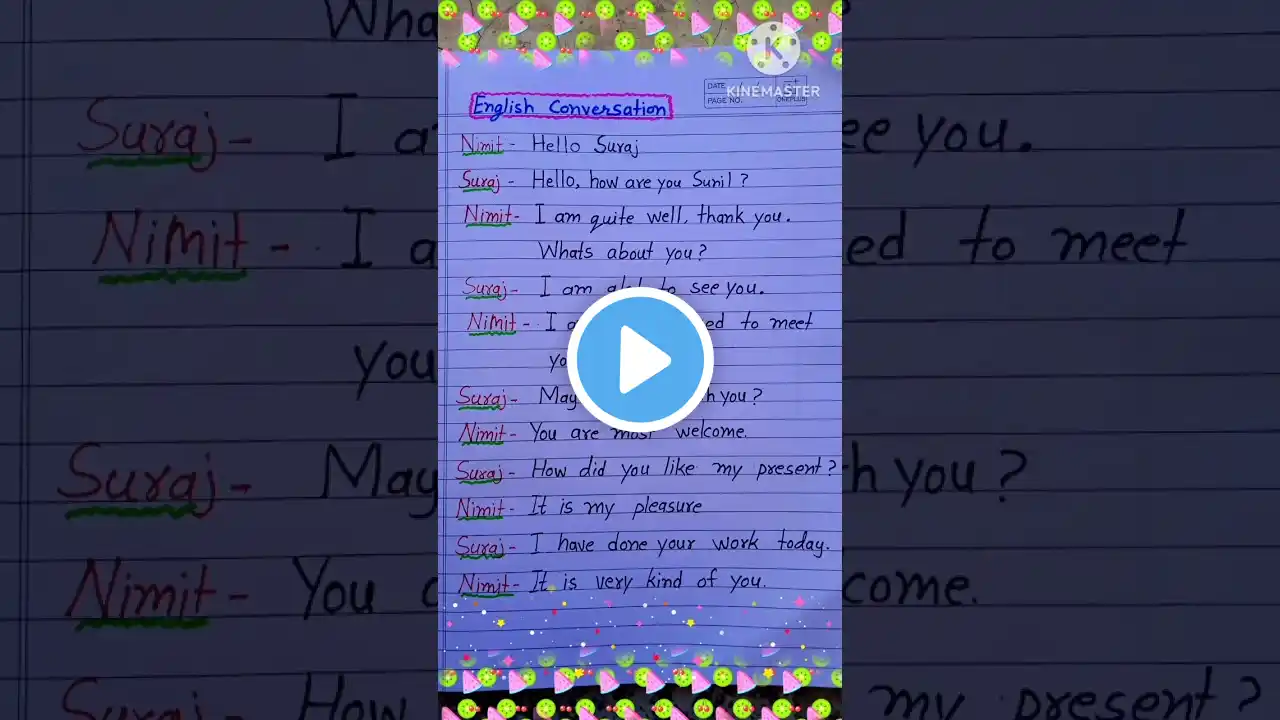 KINEMASTER
DATE
PAGE NO.
ONEPLUS
English Conversation
Nimit - Hello Suraj
Suraj - Hello, how are you Sunil ?
Nimit- I am quite well, thank you.
Whats about you?
Suraj- I am to see you.
Nimit - I ed to meet
Suraj- May you?
Nimit- You are most welcome.
Suraj- How did you like my present?
Nimit- It is my pleasure
Suraj- I have done your work today.
Nimit- It is very kind of you.